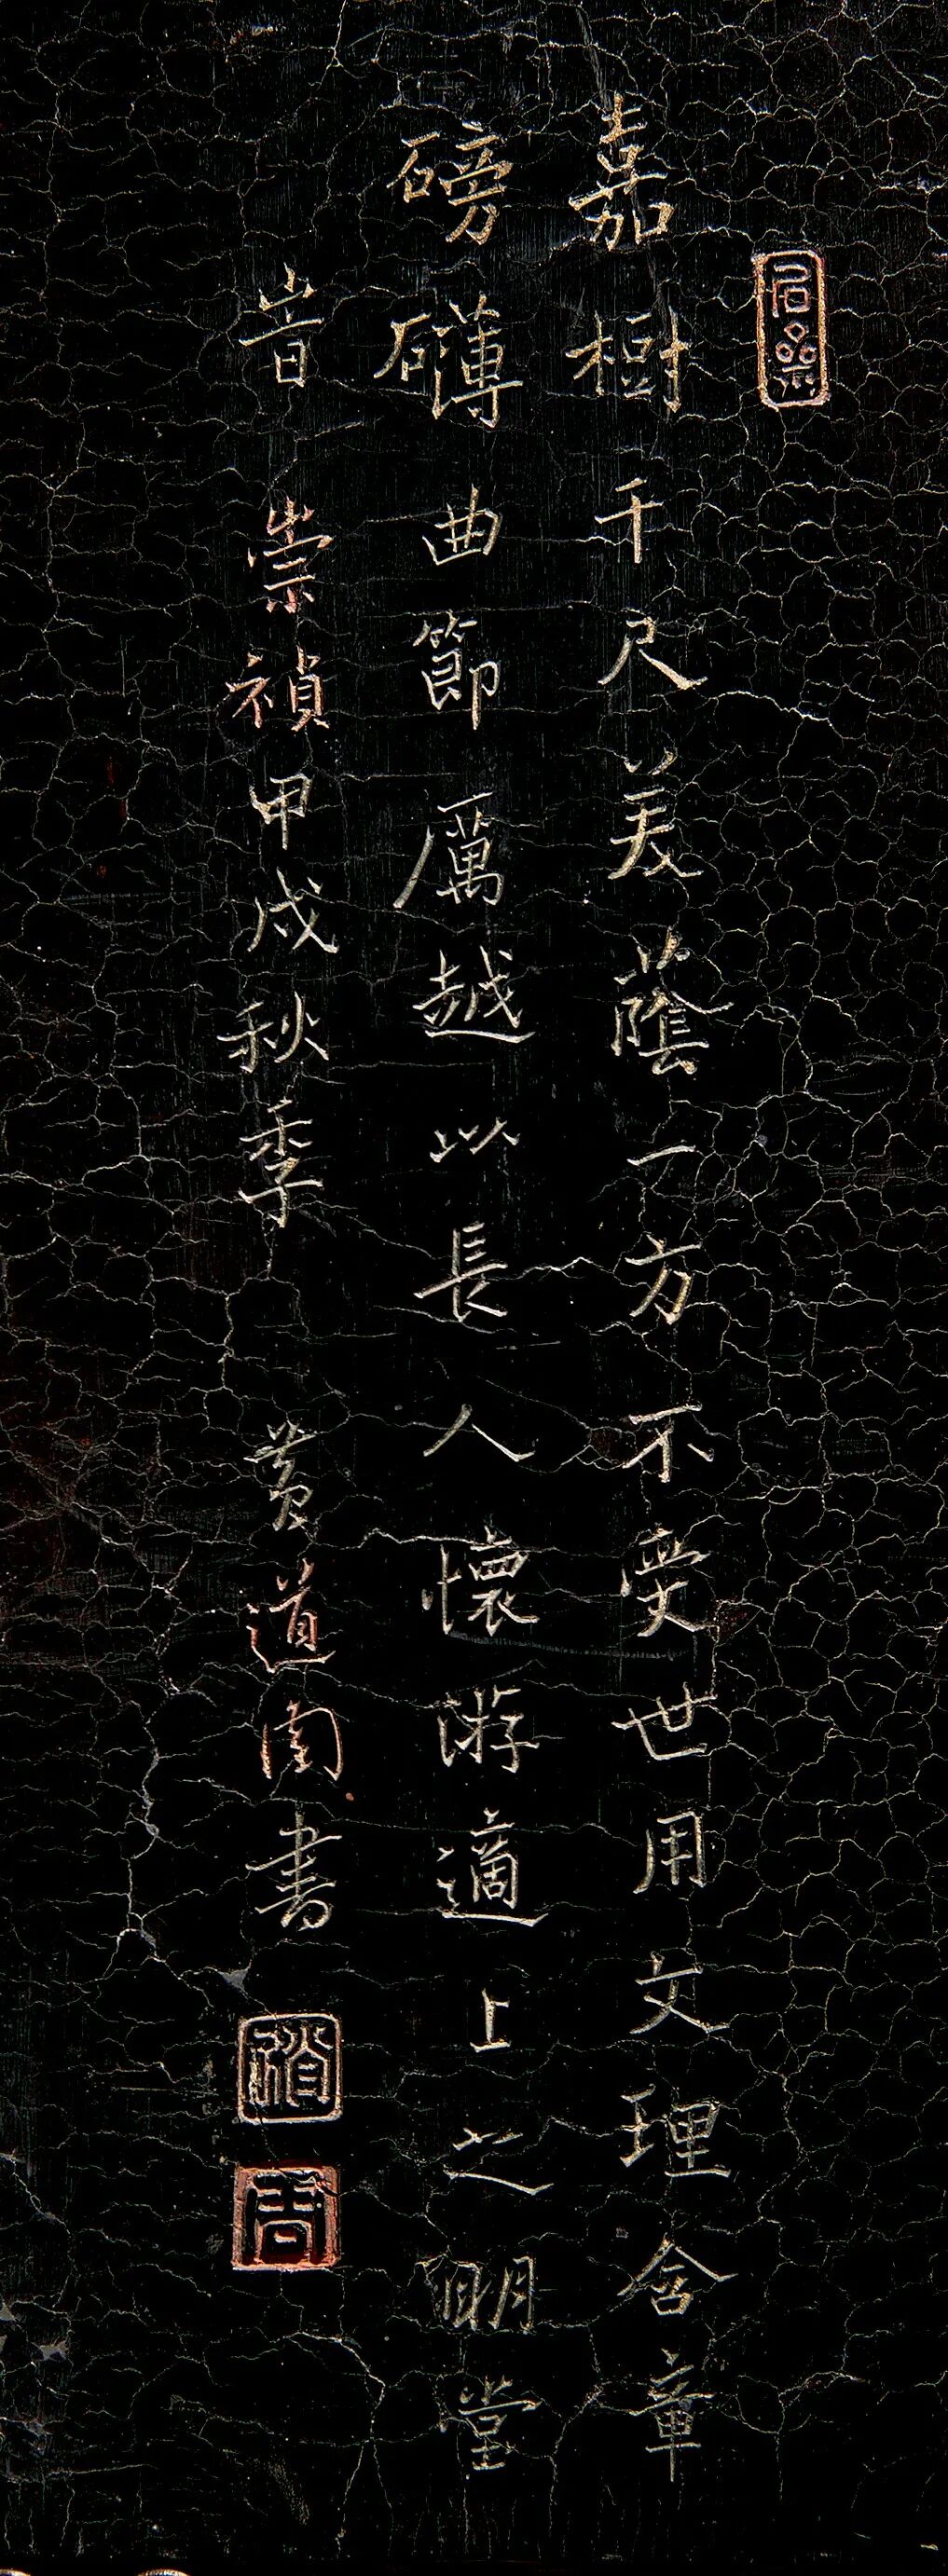 嘉樹千尺美蔭一方不受世用文理含章
磅礴曲節厲越以長人懷游適上之朙堂
旹 崇禎甲戌秋季 黃道周書
道
周